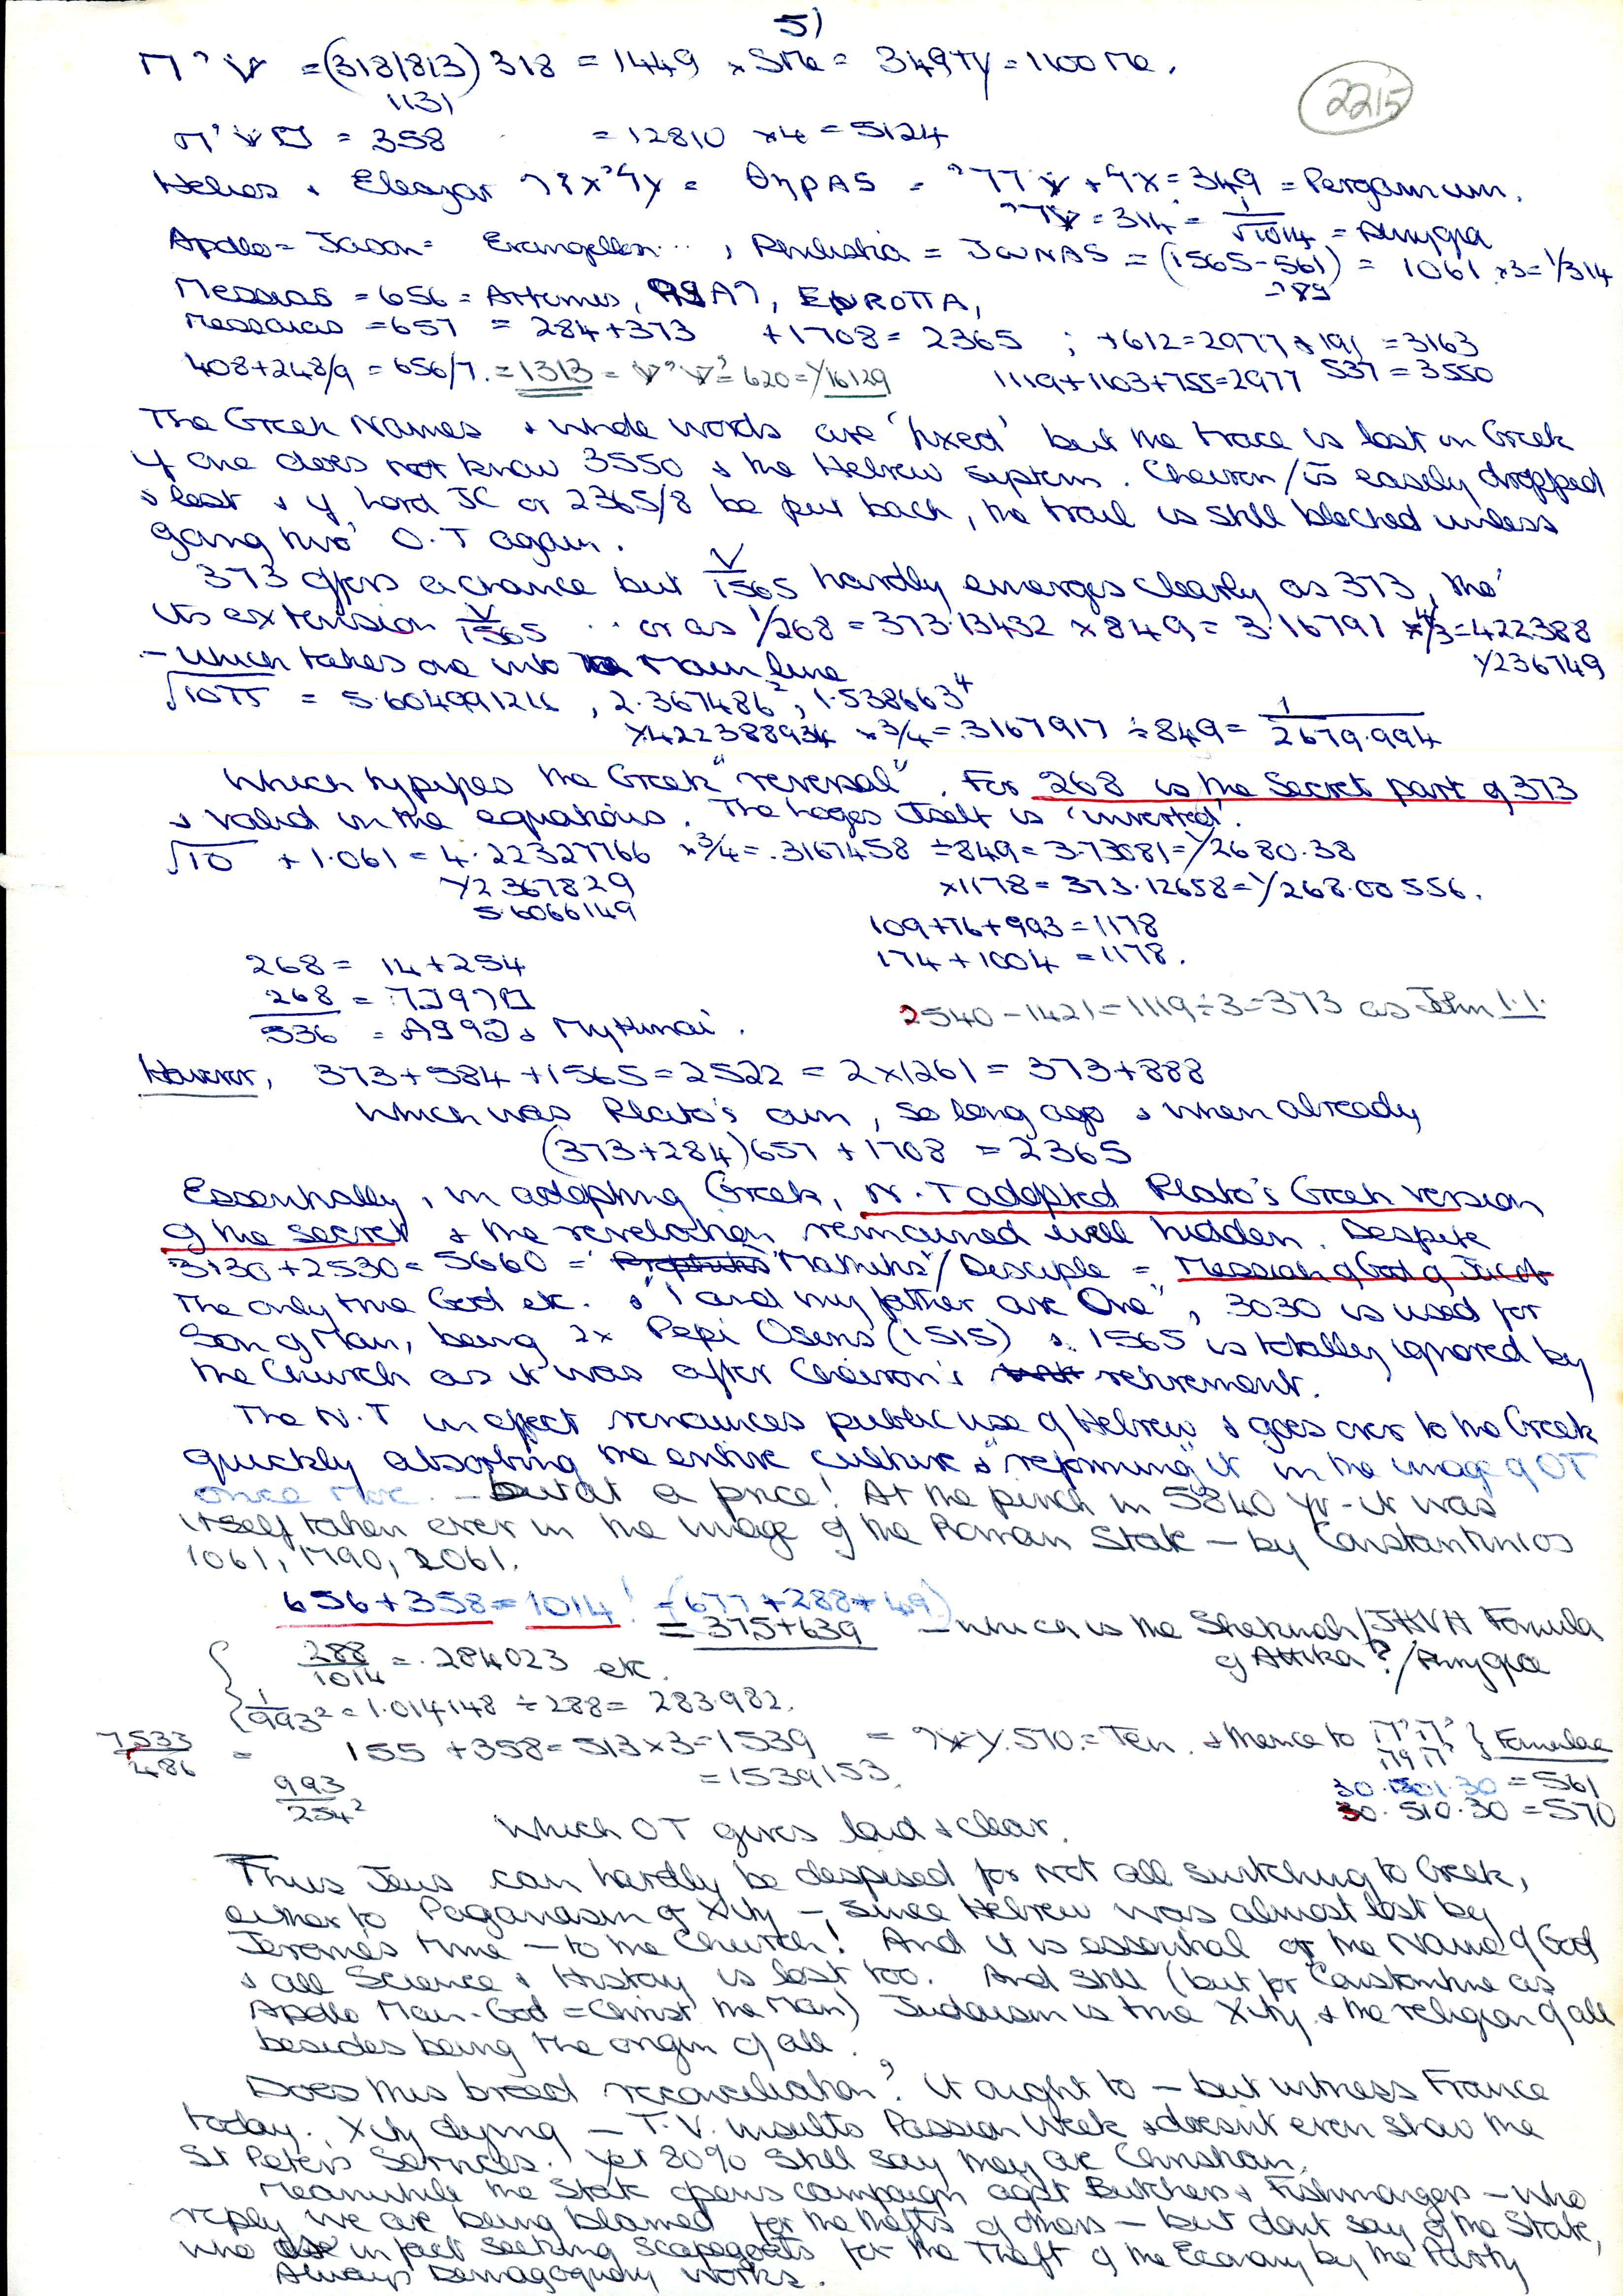 51
2215
= (318/813) 318 = 1449 × 5Me = 349 = 1100 Me.
1131
= 358 = 12810 ×4 = 5124
Helios & Eleazar = ΘηρΑS = = 349 = Pergamum.
= 314 = 1/√1014 =
Apollo = Jason = Evangelion ... , = JωNAS = (1565-561) = 1061 ×3 = 1/314
-789
Messias = 656 = Artemis, , EυROΠA,
Messaias = 657 = 284+373 +1708 = 2365 ; +612=2977 + 191 = 3163
408+248/9 = 656/7. = 1313 = = 620 = 1/16129 1119+1103+755=2977 537 = 3550
The Greek Names & whole words are 'fixed' but the trace is lost in Greek
if one does not know 3550 & the Hebrew system. Cheiron/is easily dropped
& lost & if Lord JC or 2365/8 be put back, the trail is still blocked unless
going thro' O.T again.
373 offers a chance but √/1565 hardly emerges clearly as 373, tho'
its extension √/1565 .. or as 1/268 = 373.13432 × 849 = 3.16791 ×4/3 = 422388
- which takes one into the Main line 1/236749
√1055 = 5.604991216 , 2.367486², 1.538663⁴
×422388934 ×3/4 = .3167917 ÷ 849 = 1/2679.994
Which typifies the Greek "reversal". For 268 is the Secret part of 373
& valid in the equations. The Logos itself is 'inverted'.
√10 + 1.061 = 4.22327766 ×3/4 = .3167458 ÷849 = 3.73081 = 1/2680.38
1/2367829 ×1178 = 373.12658 = 1/268.00556.
5.6066149
109+76+993 = 1178
268 = 14+254 174 + 1004 = 1178.
268 =
536 = & Mykinai. 2540 - 1421 = 1119 ÷ 3 = 373 as John 1.1.
However, 373 + 584 + 1565 = 2522 = 2×1261 = 373+888
Which was Plato's aim, so long ago & when already
(373+284) 657 + 1708 = 2365
Essentially, in adopting Greek, N.T adopted Plato's Greek version
of the secret & the revelation remained well hidden. Despite
3130 + 2530 = 5660 = "Mathitis"/Disciple = Messiah of God of Jacob
The only true God etc. & "I and my father are One", 3030 is used for
Son of Man, being 2x Pepi Osiris (1515) & 1565 is totally ignored by
the Church as it was after Cheiron's retirement.
The N.T in effect renounces public use of Hebrew & goes over to the Greek
quickly absorbing the entire culture & "reforming" it in the image of OT
once more. - but at a price! At the pinch in 5840 yr - it was
itself taken over in the image of the Roman State - by Constantinios
1061, 1790, 2061.
656+358 = 1014! = (677+288+49)
= 375+639 - which is the Shekinah/JHVH Formula
of Attika?/
288/1014 = .284023 etc.
1/993² = 1.014148 ÷ 288 = 283.982.
7533/486 = 155 + 358 = 513 × 3 = 1539 = 570. = Ten. & thence to } Formulae
993/254² = 1539153. 30.501.30 = 561
30.510.30 = 570
Which OT gives loud & clear.
Thus Jews can hardly be despised for not all switching to Greek,
either to Paganism or Xity - since Hebrew was almost lost by
Jerome's time - to the Church! And it is essential or the Name of God
& all Science & History is lost too. And still (but for Constantine as
Apollo Man-God = Christ the Man) Judaism is true Xity & the religion of all
besides being the origin of all.
Does this breed reconciliation? It ought to - but witness France
today. Xity dying - T.V. insults Passion Week & doesn't even show the
St Peters Services. Yet 80% still say they are Christian.
Meanwhile the State opens campaign agst Butchers & Fishmongers - who
reply we are being blamed for the thefts of others - but dont say of the State,
who in fact seeking scapegoats for the Theft of the Economy by the Party
Always Demagoguery works.